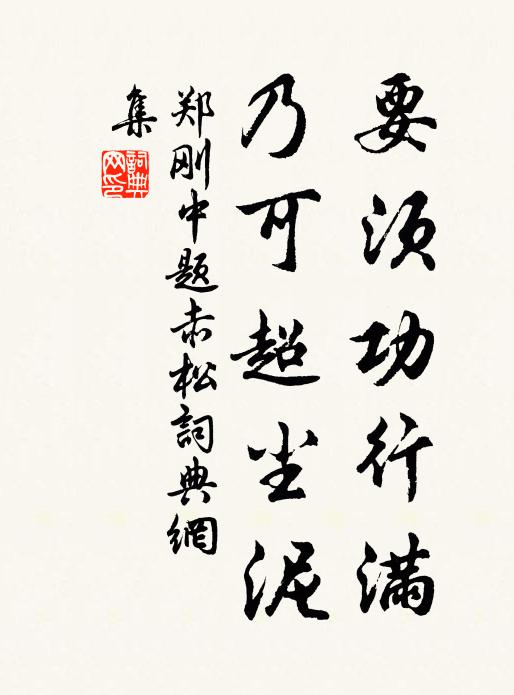 要须功行满
乃可超尘泥
郑刚中题赤松詞典網
集
詞典
网印